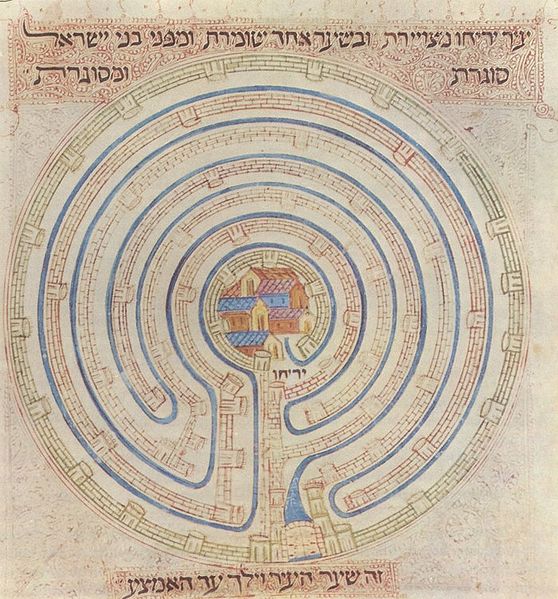 עיר יריחו מצויירת ובשער אחד שומרת ומפני בני ישראל
סוגרת ומסוגרת
יריחו
זה שער העיר וילך עד